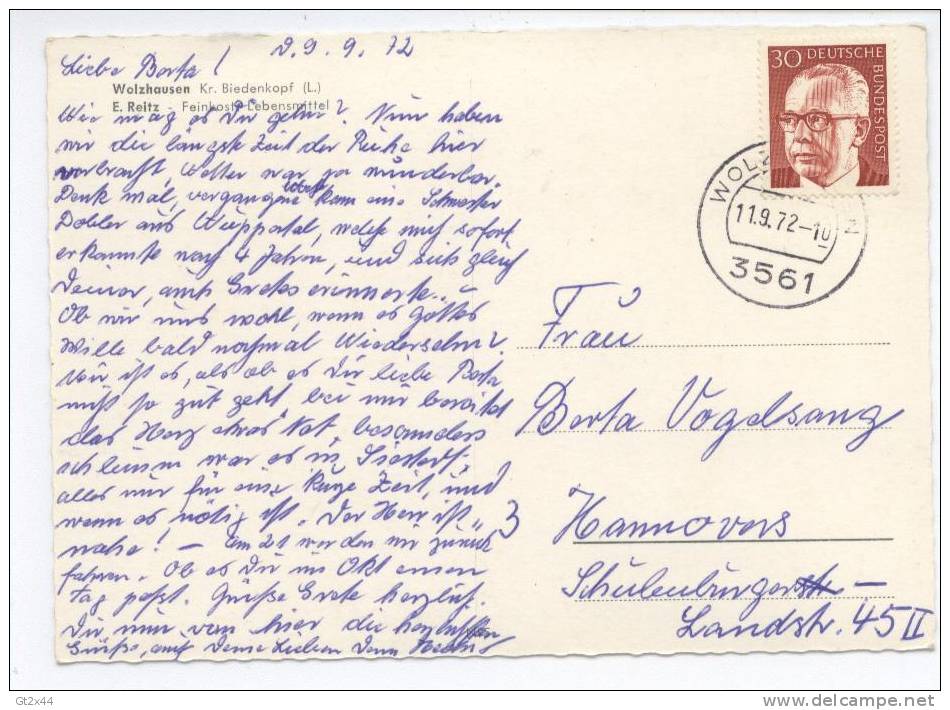 D. 9. 9. 72
Liebe Berta!
Wolzhausen Kr. Biedenkopf (L.)
E. Reitz - Feinkost-Lebensmittel
Wie mag es Dir gehn? Nun haben
wir die längste Zeit der Ruhe hier
verbracht, Wetter war ja wunderbar.
Denk mal, vergangene Woche kam eine Schwester
aus Wuppertal, welche mich sofort
erkannte nach 4 Jahren, und sich gleich
Deiner, auch Gretes erinnerte.
Ob wir uns wohl, wenn es Gottes
Wille bald nochmal Wiedersehn?
Nur ist es, als ob es Dir liebe Berta
nicht so gut geht, bei mir bereitet
das Herz etwas Not, besonders
schlimm war es in
alles nur für eine kurze Zeit, und
wenn es nötig ist. "Der Herr ist
nahe! - Am 21 werden wir zurück
fahren. Ob es Dir im Okt einen
Tag paßt. Grüße Grete herzlich.
Dir nun von hier die herzlichsten
Grüße, auch Deine Lieben Deine
30 DEUTSCHE BUNDESPOST
11.9.72-10
3561
Frau
Berta Vogelsang
3 Hannovers
Schulenburger -
Landstr. 45 II
Gt2x44
delcampe.net